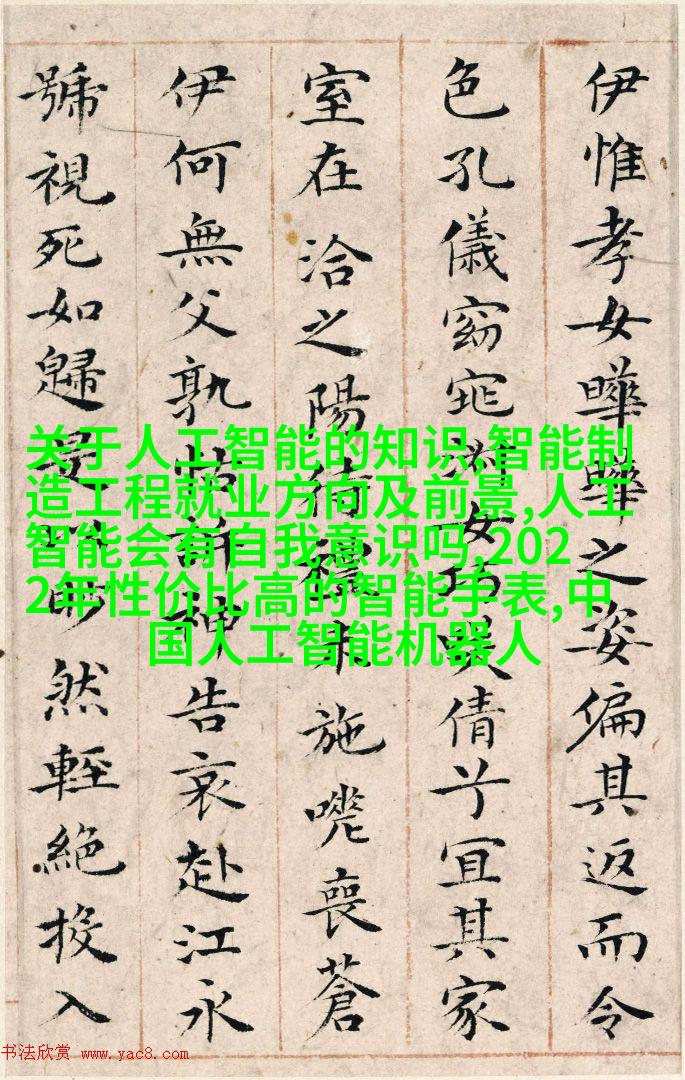 伊惟孝女曄曄之姿偏其返而令
色孔儀窈窕淑女巧咲倩兮宜其家
室在洽之陽待禮未施嗟喪蒼
伊何無父孰怙訴神告哀赴江永
號視死如歸是以眇然輕絕投入
关于人工智能的知识,智能制
造工程就业方向及前景,人工
智能会有自我意识吗,202
2年性价比高的智能手表,中
国人工智能机器人
书法欣赏 www.yac8.com